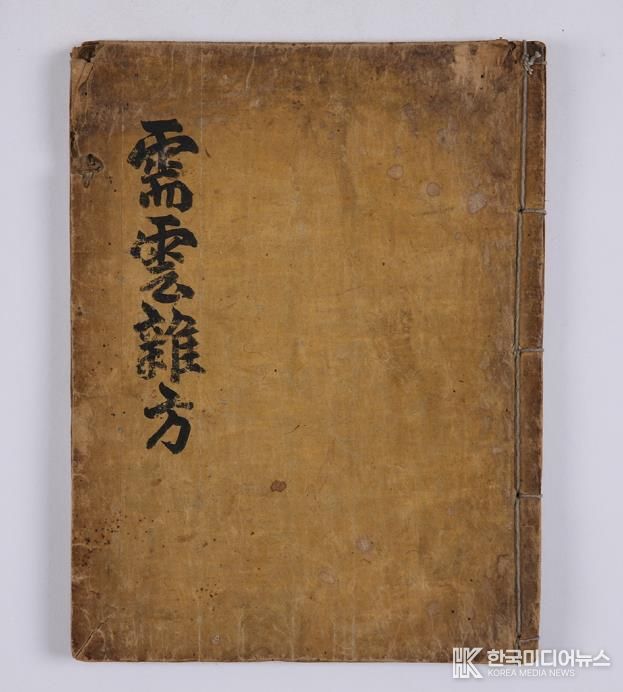 需雲雜方
HK 한국미디어뉴스
KOREA MEDIA NEWS